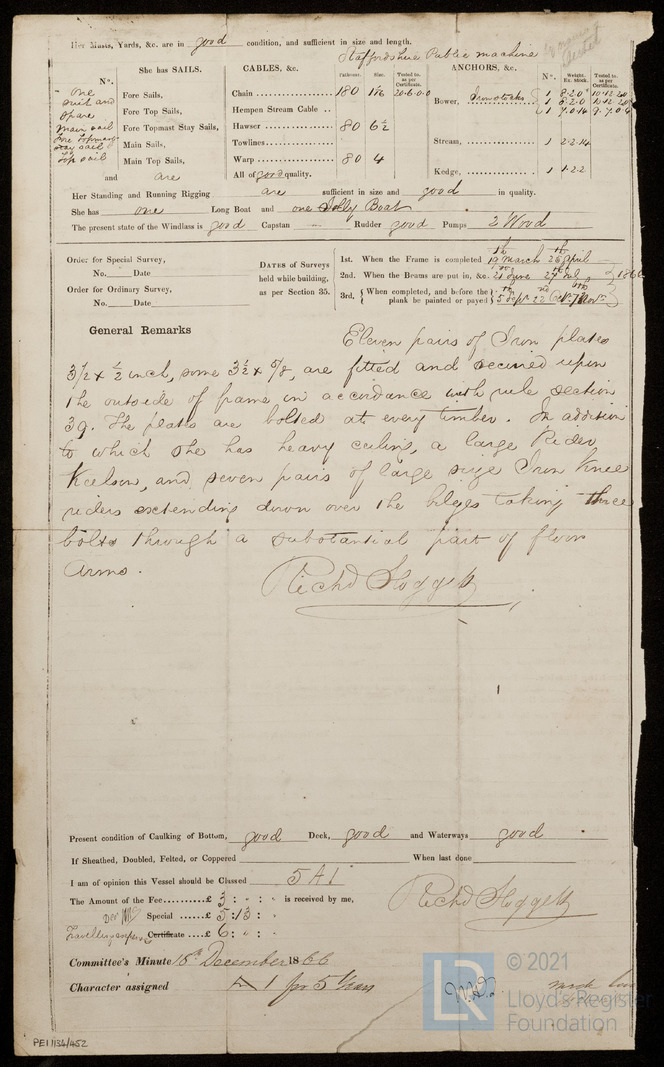 Her Masts, Yards, &c. are in good condition, and sufficient in size and length.
Staffordshire Public machine
She has SAILS.
CABLES, &c.
Fathoms.
Size.
Tested to. as per Certificate.
ANCHORS, &c.
No.
Weight. Ex. Stock.
Tested to. as per Certificate.
No.
one suit and spare main sail Fore Topmast stay sail Top sail
Fore Sails,
Fore Top Sails,
Fore Topmast Stay Sails,
Main Sails,
Main Top Sails,
and are
Chain 180 20-6-0-0
Hempen Stream Cable
Hawser 80 6½
Towlines
Warp 80 4
All of good quality.
Bower, 1 8-2-0
1 8-2-0
1 7-0-14
Stream, 1 2-2-14
Kedge, 1 1-2-2
Her Standing and Running Rigging are sufficient in size and good in quality.
She has one Long Boat and one Jolly Boat
The present state of the Windlass is good Capstan — Rudder good Pumps 2 Wood
Order for Special Survey,
No. Date
Order for Ordinary Survey,
No. Date
DATES of Surveys
held while building,
as per Section 35.
1st. When the Frame is completed 19th March 26th April
2nd. When the Beams are put in, &c. 21st June 27th
3rd. { When completed, and before the plank be painted or payed 5th Sept 22nd
General Remarks
Eleven pairs of Iron plates
3½ x ½ inch, some 3½ x 5/8, are fitted and secured upon
the outside of frame in accordance with rule section
39. The plates are bolted at every timber. In addition
to which she has heavy ceiling, a large Rider
Keelson, and seven pairs of large size Iron Knee
riders extending down over the bilges taking three
bolts through a substantial part of floor
arms.
Richd Hoggett
Present condition of Caulking of Bottom, good Deck, good and Waterways good
If Sheathed, Doubled, Felted, or Coppered When last done
I am of opinion this Vessel should be Classed 5 A 1
The Amount of the Fee £ 3 : " : " is received by me,
Special £ 5 : 13 : "
Travelling expenses Certificate £ 6 : " : "
Richd Hoggett
Committee's Minute 18th December 1866
Character assigned A 1 for 5 Years
PE11134/452
LR
© 2021
Lloyd's Register
Foundation